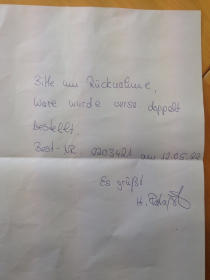 Bitte um Rücknahme,
Ware wurde verse doppelt
bestellt
Best-NR 0203421 am 12.05.22
Es grüßt
H.